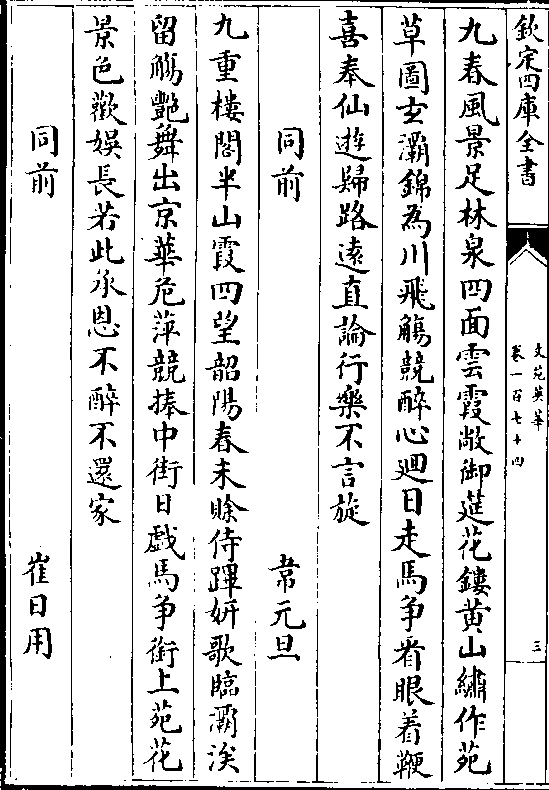 欽定四庫全書
文苑英華
卷一百七十四
三
九春風景足林泉四面雲霞敞御筵花鏤黄山繡作苑
草圖𤣥灞錦為川飛觴競醉心廻日走馬爭看眼着鞭
喜奉仙遊歸路遠直論行樂不言旋
同前
韋元旦
九重樓閣半山霞四望韶陽春未賒侍蹕妍歌臨灞涘
留觴艶舞出京華危萍競捧中街日戲馬爭銜上苑花
景色歡娛長若此承恩不醉不還家
同前
崔日用